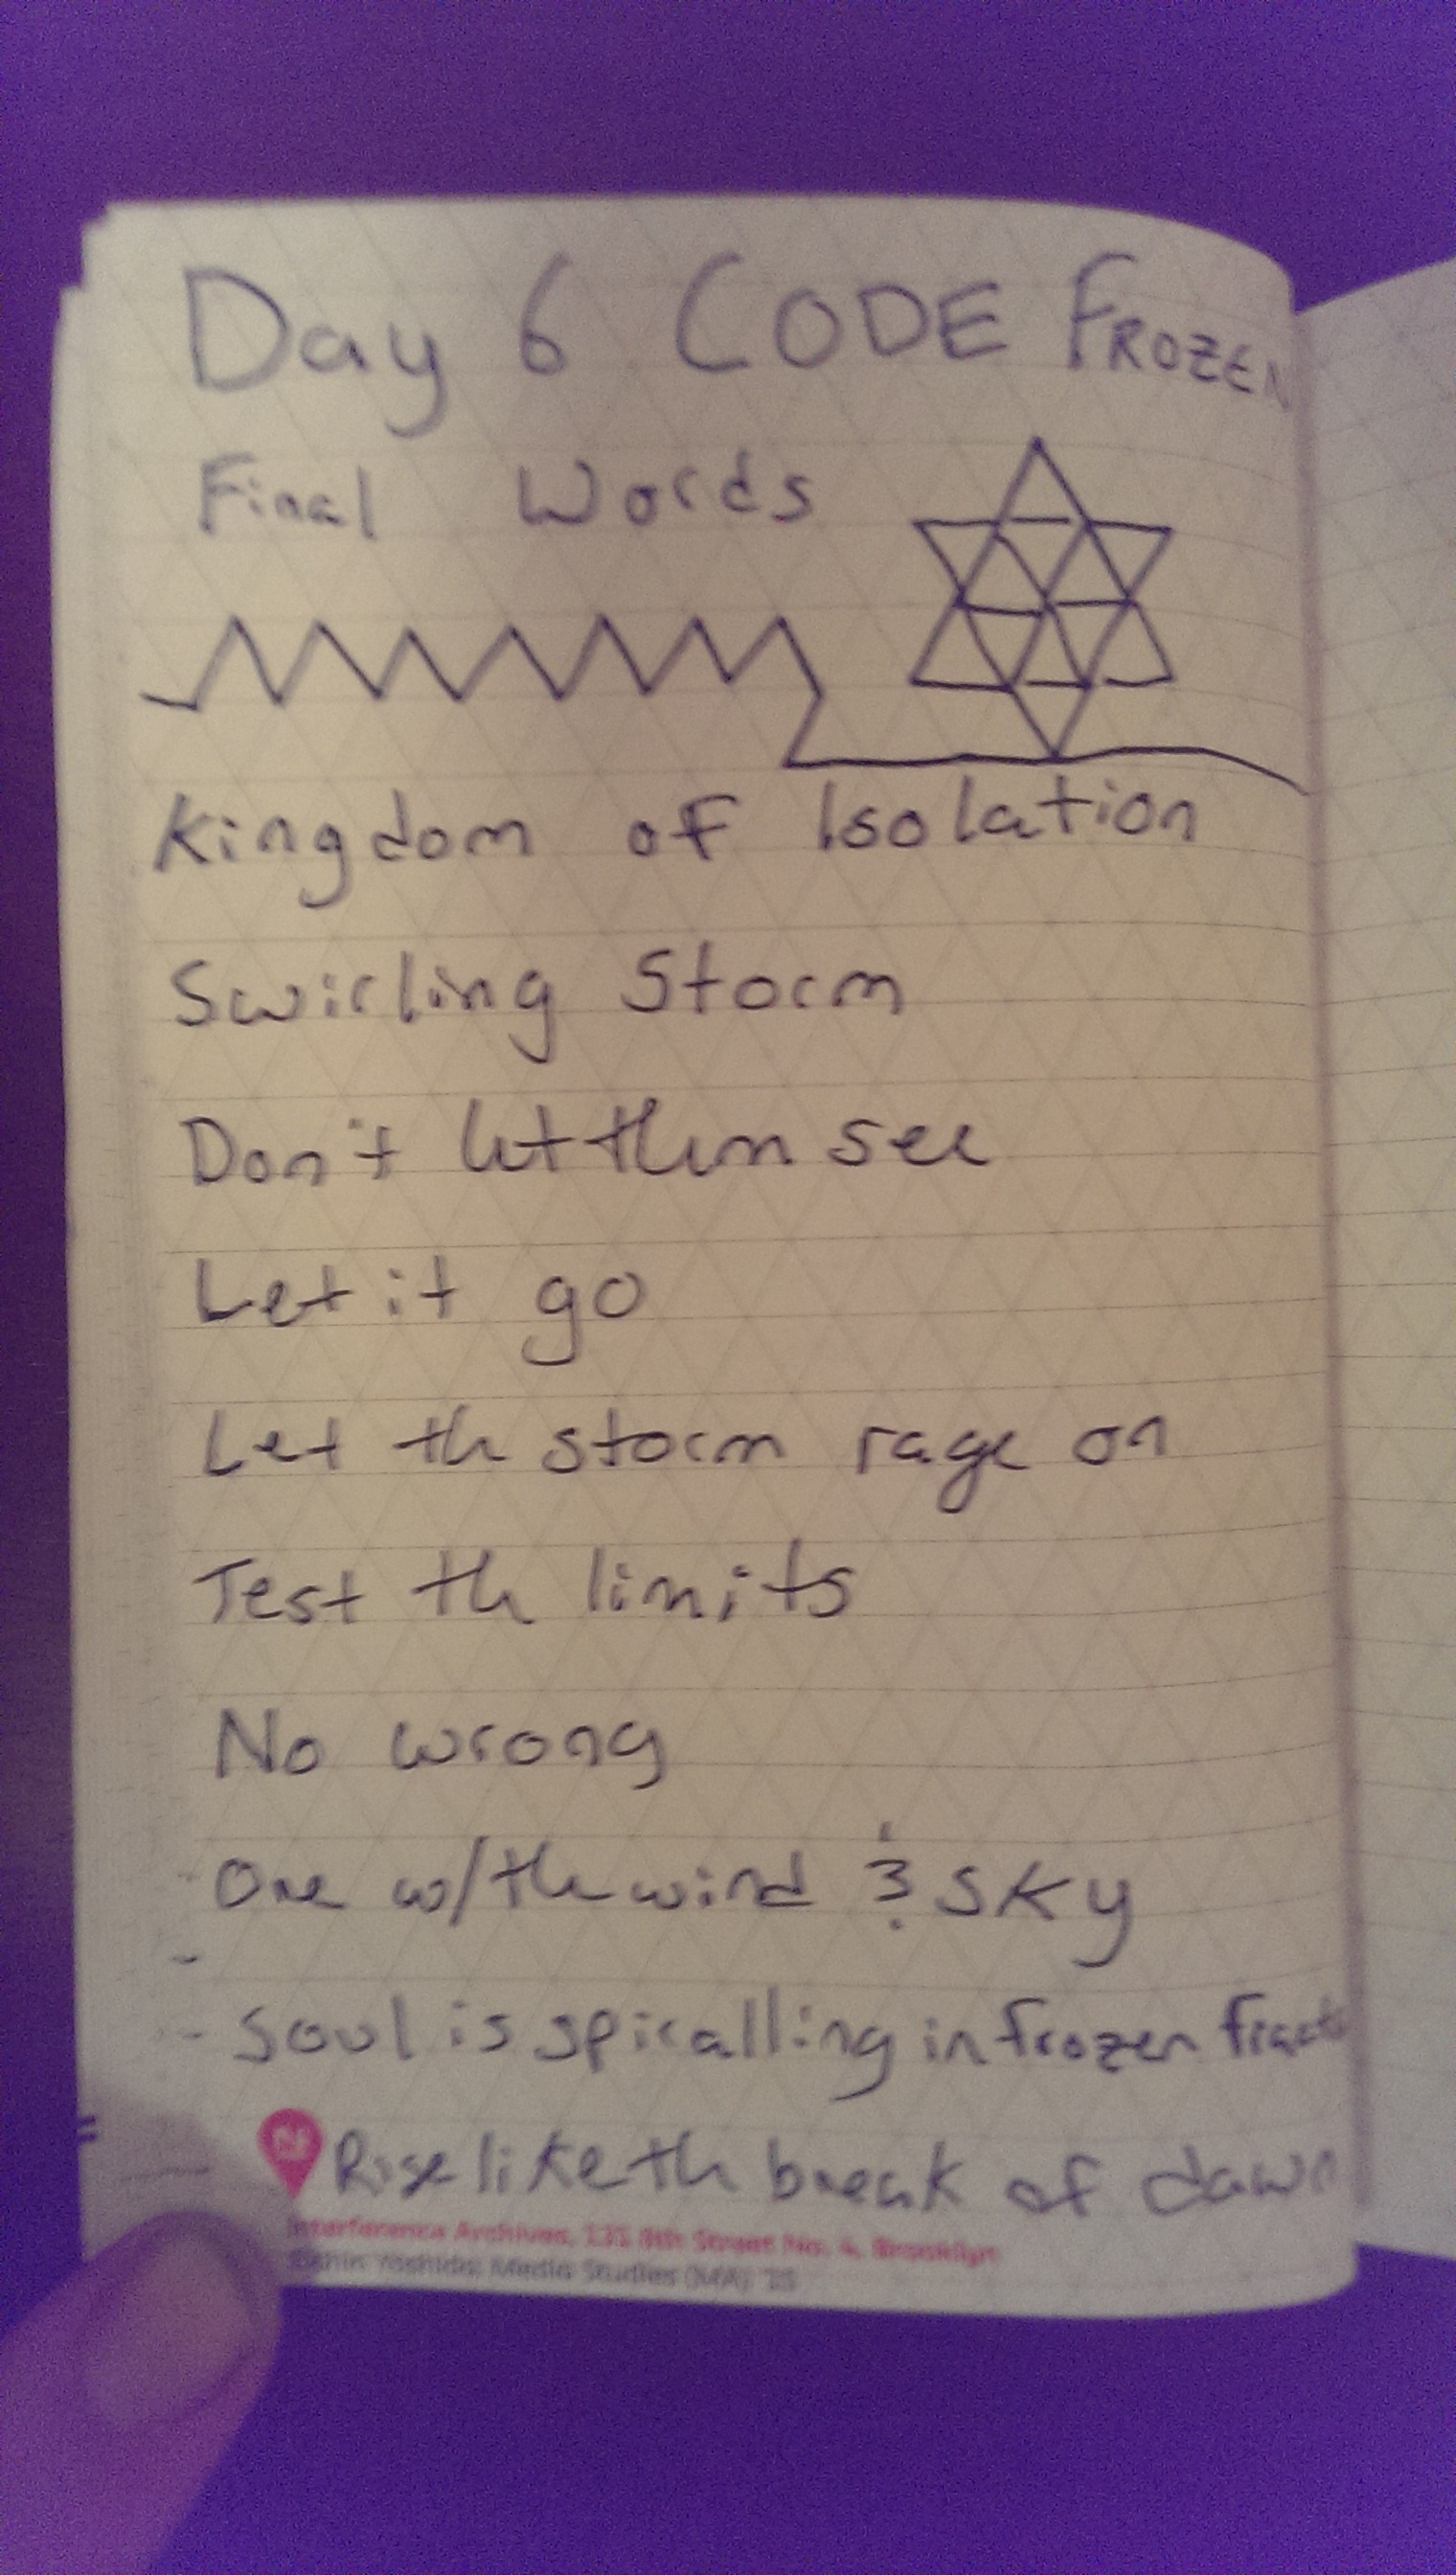 Day 6 CODE FROZEN
Final Words
Kingdom of Isolation
Swirling Storm
Don't let them see
Let it go
Let th storm rage on
Test th limits
No wrong
One w/the wind & sky
Soul is spiralling in frozen
Rise like th break of dawn
Interference Archives, 131 8th Street No. 4, Brooklyn
Yoshida, Media Studies (MA) '15